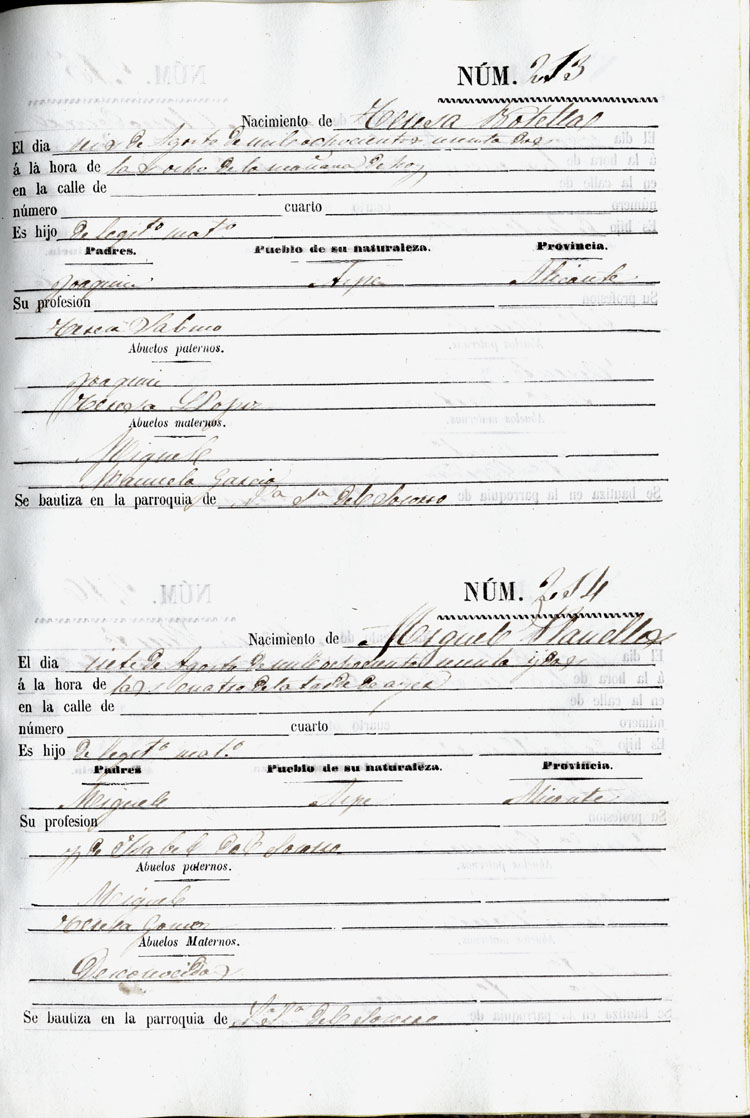 NÚM. 213
Nacimiento de Teresa Botella
El dia seis de Agosto de mil ochocientos
á la hora de las ocho de la mañana de hoy
en la calle de
número cuarto
Es hijo de legit.º mat.º
Padres. Pueblo de su naturaleza. Provincia.
Joaquin Aspe Alicante
Su profesion
Teresa Sabuco
Abuelos paternos.
Joaquin
Teresa
Abuelos maternos.
Miguel
Manuela Garcia
Se bautiza en la parroquia de del Socorro
NÚM. 214
Nacimiento de Miguel
El dia siete de Agosto de mil ochocientos y dos
á la hora de las cuatro de la tarde de ayer
en la calle de
número cuarto
Es hijo de legit.º mat.º
Padres Pueblo de su naturaleza. Provincia.
Miguel Aspe Alicante
Su profesion
y de Isabel del Socorro
Abuelos paternos.
Miguel
Teresa Gomez
Abuelos Maternos.
Desconocidos
Se bautiza en la parroquia de del Socorro